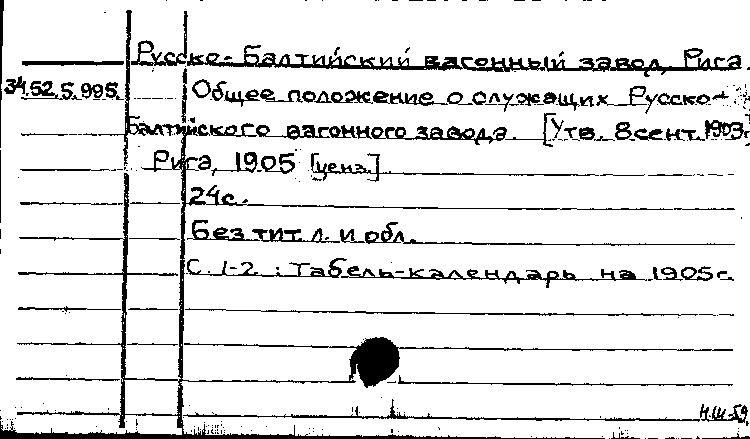 Русско-Балтийский вагонный завод, Рига.
34.52.5.995. Общее положение о служащих Русско-
Балтийского вагонного завода. [Утв. 8 сент. 1903г.
Рига, 1905 [ценз.]
24с.
Без тит. л. и обл.
С. 1-2: Табель-календарь на 1905г.
Н.Ш-59